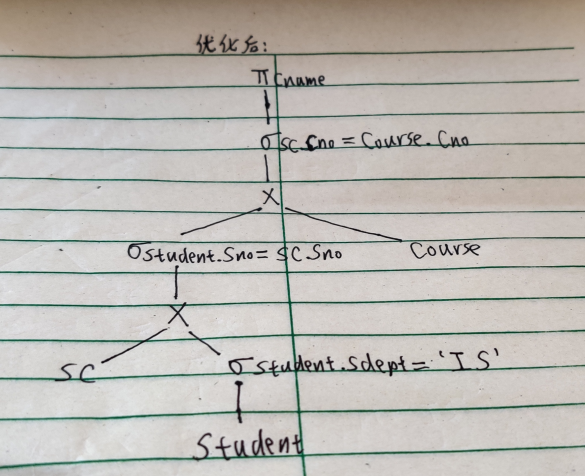 优化后:
π Cname
σ SC.Cno = Course.Cno
X
σ Student.Sno = SC.Sno Course
X
SC σ Student.Sdept = 'IS'
Student